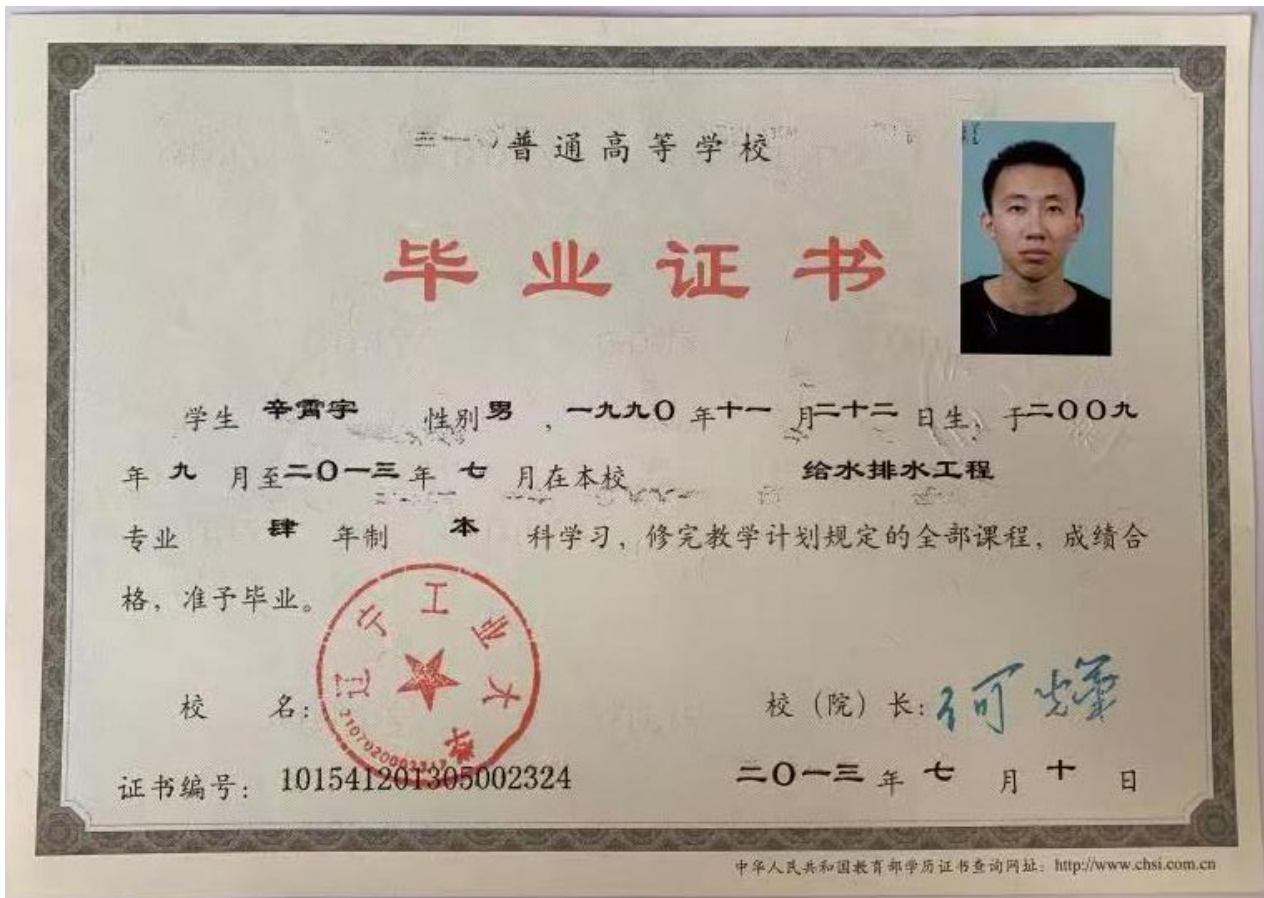 普通高等学校
毕业证书
学生 辛霄宇 性别 男 , 一九九〇 年 十一 月 二十二 日生, 于 二〇〇九
年 九 月至 二〇一三 年 七 月在本校 给水排水工程
专业 肆 年制 本 科学习, 修完教学计划规定的全部课程, 成绩合
格, 准予毕业。
辽宁工业大学
校 名: 校 (院) 长:
证书编号: 101541201305002324 二〇一三 年 七 月 十 日
中华人民共和国教育部学历证书查询网址: http://www.chsi.com.cn